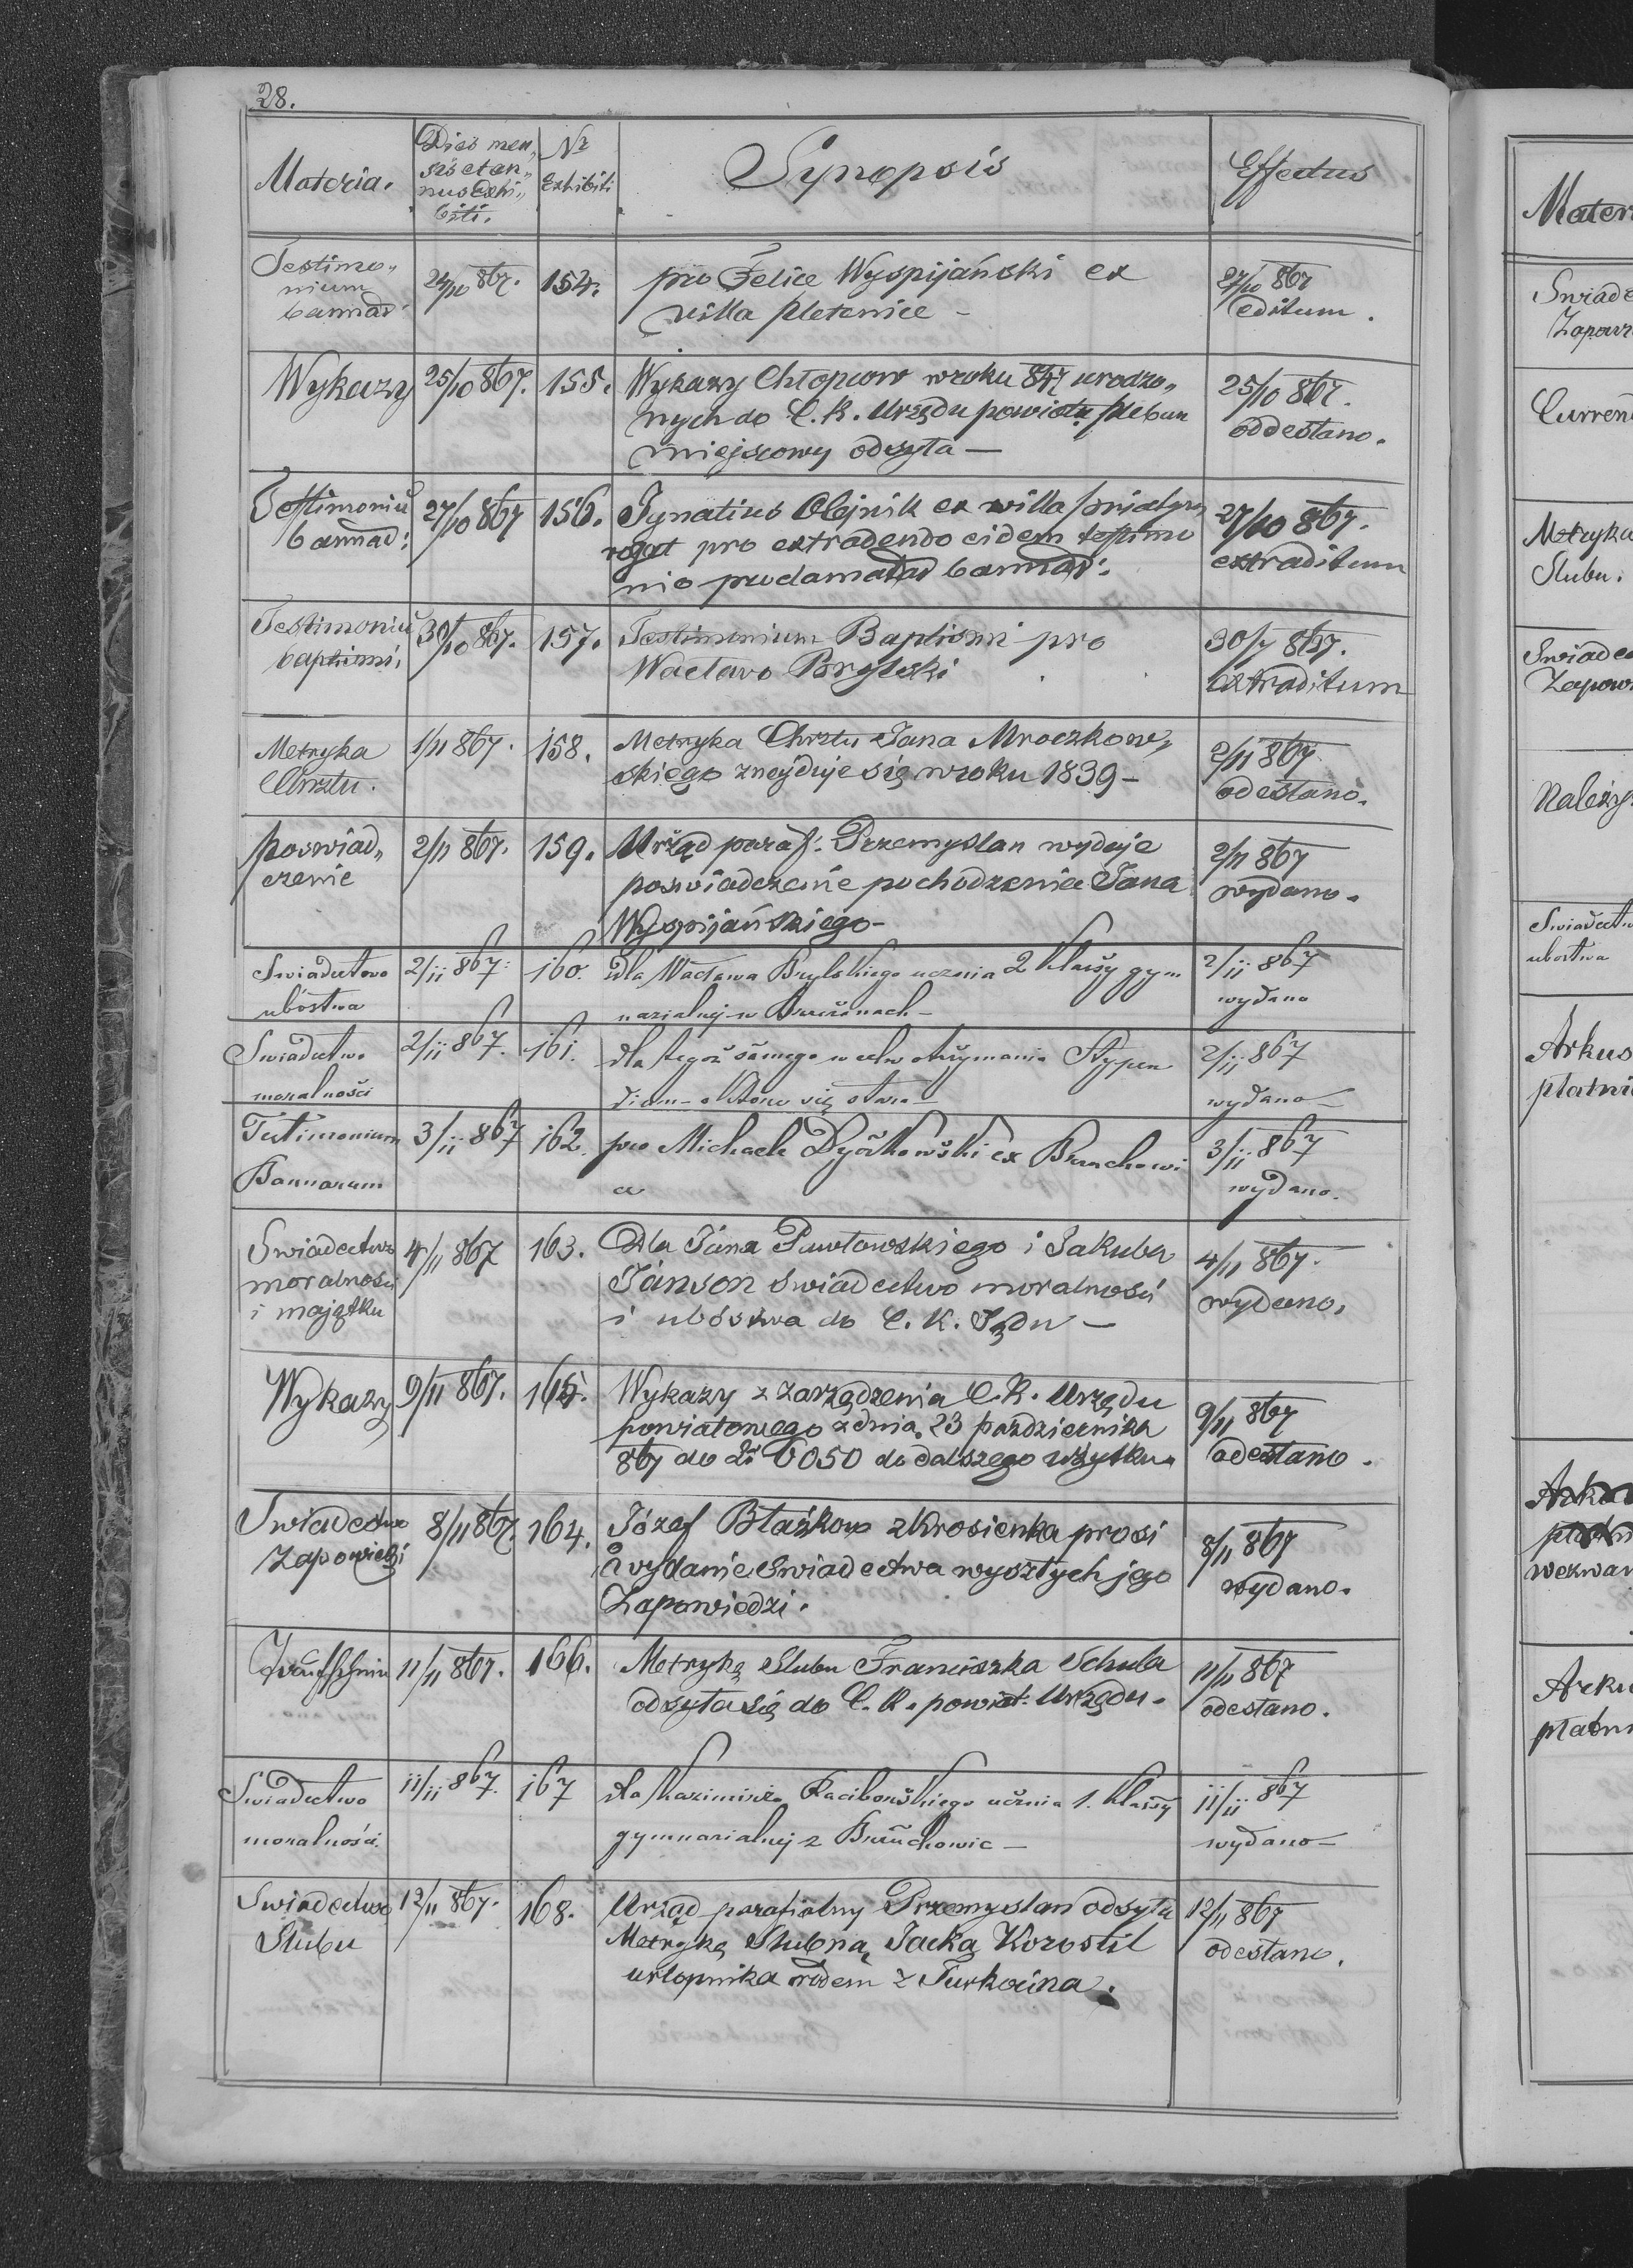 28.
Materia.
Dies men„
sis et an„
nus Exhi„
biti.
Nr
Exhibiti
Synopsis
Effectus
Testimo„
nium
bannal
24/10 867.
154.
pro Felice Wyspijański ex
villa Pletenice –
27/10 867
editum.
Wykazy
25/10 867.
155.
Wykazy Chłopców w roku 847 urodzo„
nych do C. K. Urzędu powiatu pleban
miejscowy odsyła —
25/10 867.
oddesłano.
Testimoniū
bannal:
27/10 867
156.
Ignatius Olejnik ex villa
rogat pro extradendo eidem testimo
nio
27/10 867.
extraditum
Testimoniū
baptismi,
30/10 867.
157.
Testimonium Baptismi pro
Wacławo Brylski
30/ 867.
extraditum
Metryka
Chrztu.
1/11 867.
158.
Metryka Chrztu Jana Mroczkow„
skiego znajduje się w roku 1839 –
2/11 867
odesłano.
poswiad„
czenie
2/11 867.
159.
Urząd paraf: Przemyslan wydaje
poswiadczenie pochodzenia Jana
Wyspijańskiego –
2/11 867
wydano.
Swiadectwo
ubóstwa
2/11 867.
160.
dla Wacława Brylskiego ucznia 2 klassy gym
nazialnej w Brzeżanach –
2/11 867
wydano
Swiadectwo
moralności
2/11 867.
161.
dla tegoż samego w celu otrzymania Stypen
dium – o które się stara –
2/11 867
wydano –
Testimonium
Bannarum
3/11 867
162.
pro Michaele ex Bruchowi
ce
3/11 867
wydano.
Swiadectwo
moralnosci
i majątku
4/11 867
163.
Dla Jána Pawłowskiego i Jakuba
Jánson swiadectwo moralnosci
i ubóstwa do C. K. Sądu —
4/11 867.
wydano.
Wykazy
9/11 867.
165.
Wykazy z zarządzenia C. K. Urzędu
powiatowego z dnia 23 października
867 do L: 6050 do dalszego użytku.
9/11 867
odesłano.
Swiadectwo
Zapowiedzi
8/11 867.
164.
Józef Błażkow z Krosienka prosi
o wydanie swiadectwa wyszłych jego
Zapowiedzi.
8/11 867
wydano.
11/11 867.
166.
Metrykę Slubu Franciszka Schula
odsyła się do C. K. powiat: Urzędu.
11/11 867
odesłano.
Swiadectwo
moralności
11/11 867.
167
dla Kazimirza Raciborskiego ucznia 1. klassy
gymnazialnej z Bruchowic —
11/11 867
wydano –
Swiadectwo
Slubu
12/11 867.
168.
Urząd parafialny Przemyslan odsyła
Metrykę Slubną, Jacka Korostil
urlopnika rodem z Turkocina.
12/11 867
odesłano.
Mater
Swiade
Zapow
Curren
Metryka
Slubu.
Swiadec
Zapow
Należy
Swiadectw
ubostwa
Arkus
płatni
wezwan
Arku
płatni